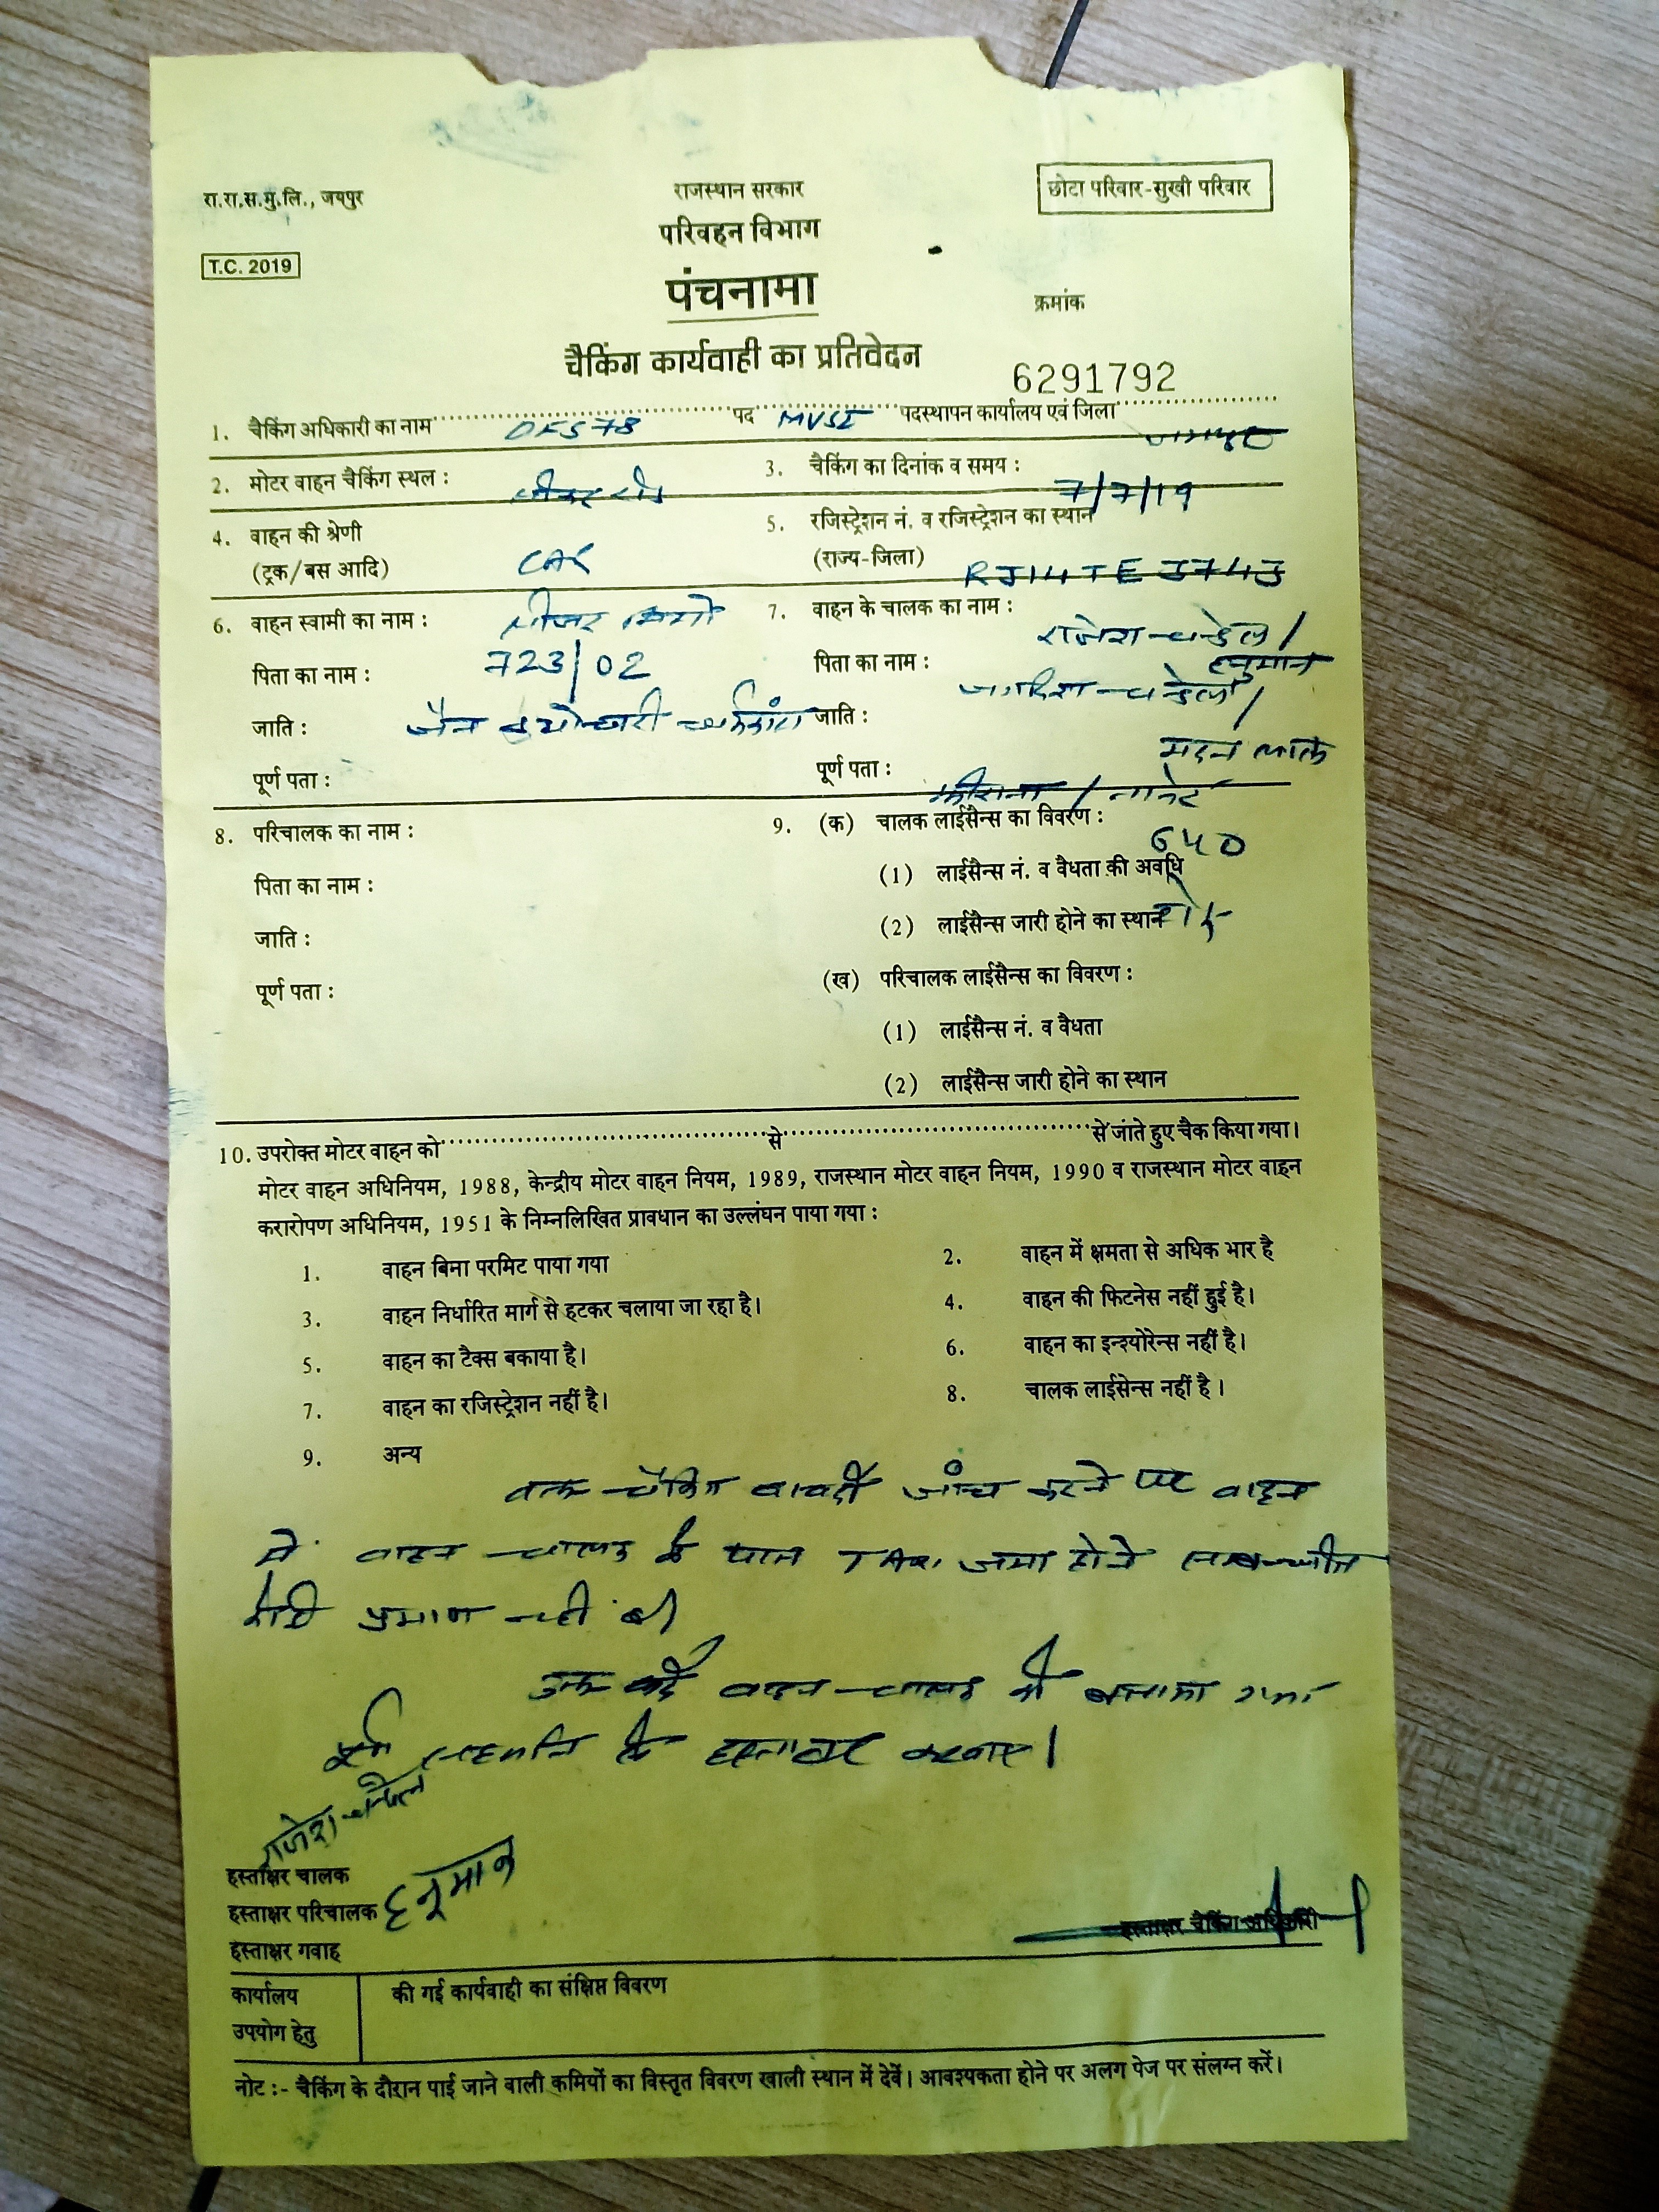 रा.रा.स.मु.लि., जयपुर
राजस्थान सरकार
छोटा परिवार-सुखी परिवार
परिवहन विभाग
T.C. 2019
पंचनामा
क्रमांक
चैकिंग कार्यवाही का प्रतिवेदन
6291792
1. चैकिंग अधिकारी का नाम पद MVSI पदस्थापन कार्यालय एवं जिला
2. मोटर वाहन चैकिंग स्थल :
3. चैकिंग का दिनांक व समय : 7/7/19
4. वाहन की श्रेणी
(ट्रक/बस आदि) CAR
5. रजिस्ट्रेशन नं. व रजिस्ट्रेशन का स्थान
(राज्य-जिला) RJ14TE 3743
6. वाहन स्वामी का नाम :
पिता का नाम : 723/02
जाति :
पूर्ण पता :
7. वाहन के चालक का नाम : राजेश चन्देल /
हनुमान
पिता का नाम :
जाति : मदन लाल
पूर्ण पता :
8. परिचालक का नाम :
पिता का नाम :
जाति :
पूर्ण पता :
9. (क) चालक लाईसैन्स का विवरण :
(1) लाईसैन्स नं. व वैधता की अवधि
(2) लाईसैन्स जारी होने का स्थान
(ख) परिचालक लाईसैन्स का विवरण :
(1) लाईसैन्स नं. व वैधता
(2) लाईसैन्स जारी होने का स्थान
10. उपरोक्त मोटर वाहन को से से जाते हुए चैक किया गया।
मोटर वाहन अधिनियम, 1988, केन्द्रीय मोटर वाहन नियम, 1989, राजस्थान मोटर वाहन नियम, 1990 व राजस्थान मोटर वाहन
करारोपण अधिनियम, 1951 के निम्नलिखित प्रावधान का उल्लंघन पाया गया :
1. वाहन बिना परमिट पाया गया
2. वाहन में क्षमता से अधिक भार है
3. वाहन निर्धारित मार्ग से हटकर चलाया जा रहा है।
4. वाहन की फिटनेस नहीं हुई है।
5. वाहन का टैक्स बकाया है।
6. वाहन का इन्श्योरेन्स नहीं है।
7. वाहन का रजिस्ट्रेशन नहीं है।
8. चालक लाईसेन्स नहीं है ।
9. अन्य
जांच करने पर वाहन
वाहन चालक के पास जमा होने
प्रमाण नहीं
वाहन चालक को बताया गया
हस्ताक्षर करवाए।
राजेश चन्देल
हस्ताक्षर चालक
हस्ताक्षर परिचालक हनुमान
हस्ताक्षर चैकिंग अधिकारी
हस्ताक्षर गवाह
कार्यालय
उपयोग हेतु
की गई कार्यवाही का संक्षिप्त विवरण
नोट :- चैकिंग के दौरान पाई जाने वाली कमियों का विस्तृत विवरण खाली स्थान में देवें। आवश्यकता होने पर अलग पेज पर संलग्न करें।